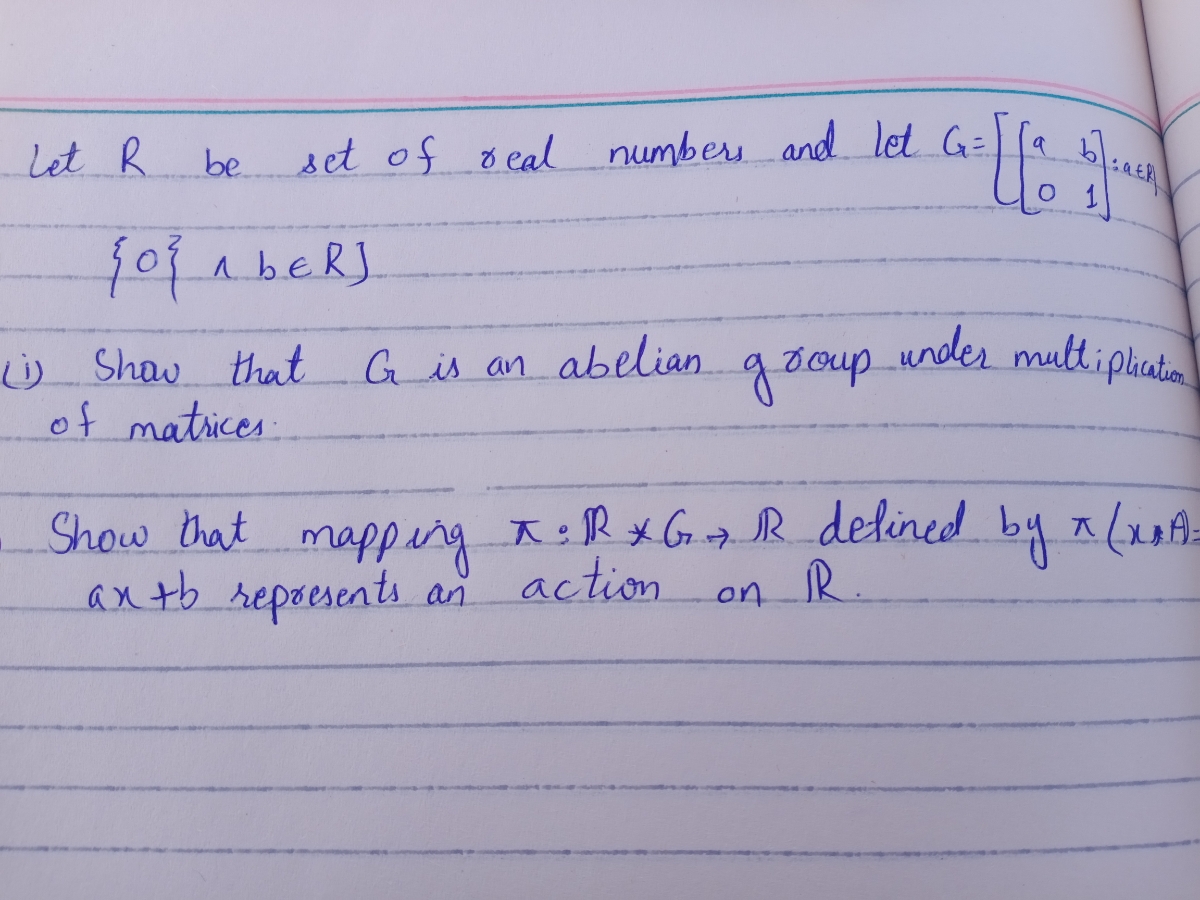 Let R be set of real numbers and let G=[[a b
0 1]:a∈R
{0} ∧ b∈R]
(i) Show that G is an abelian group under multiplication
of matrices.
Show that mapping π:ℝ*G→ℝ defined by π(x*A)=
ax+b represents an action on ℝ.